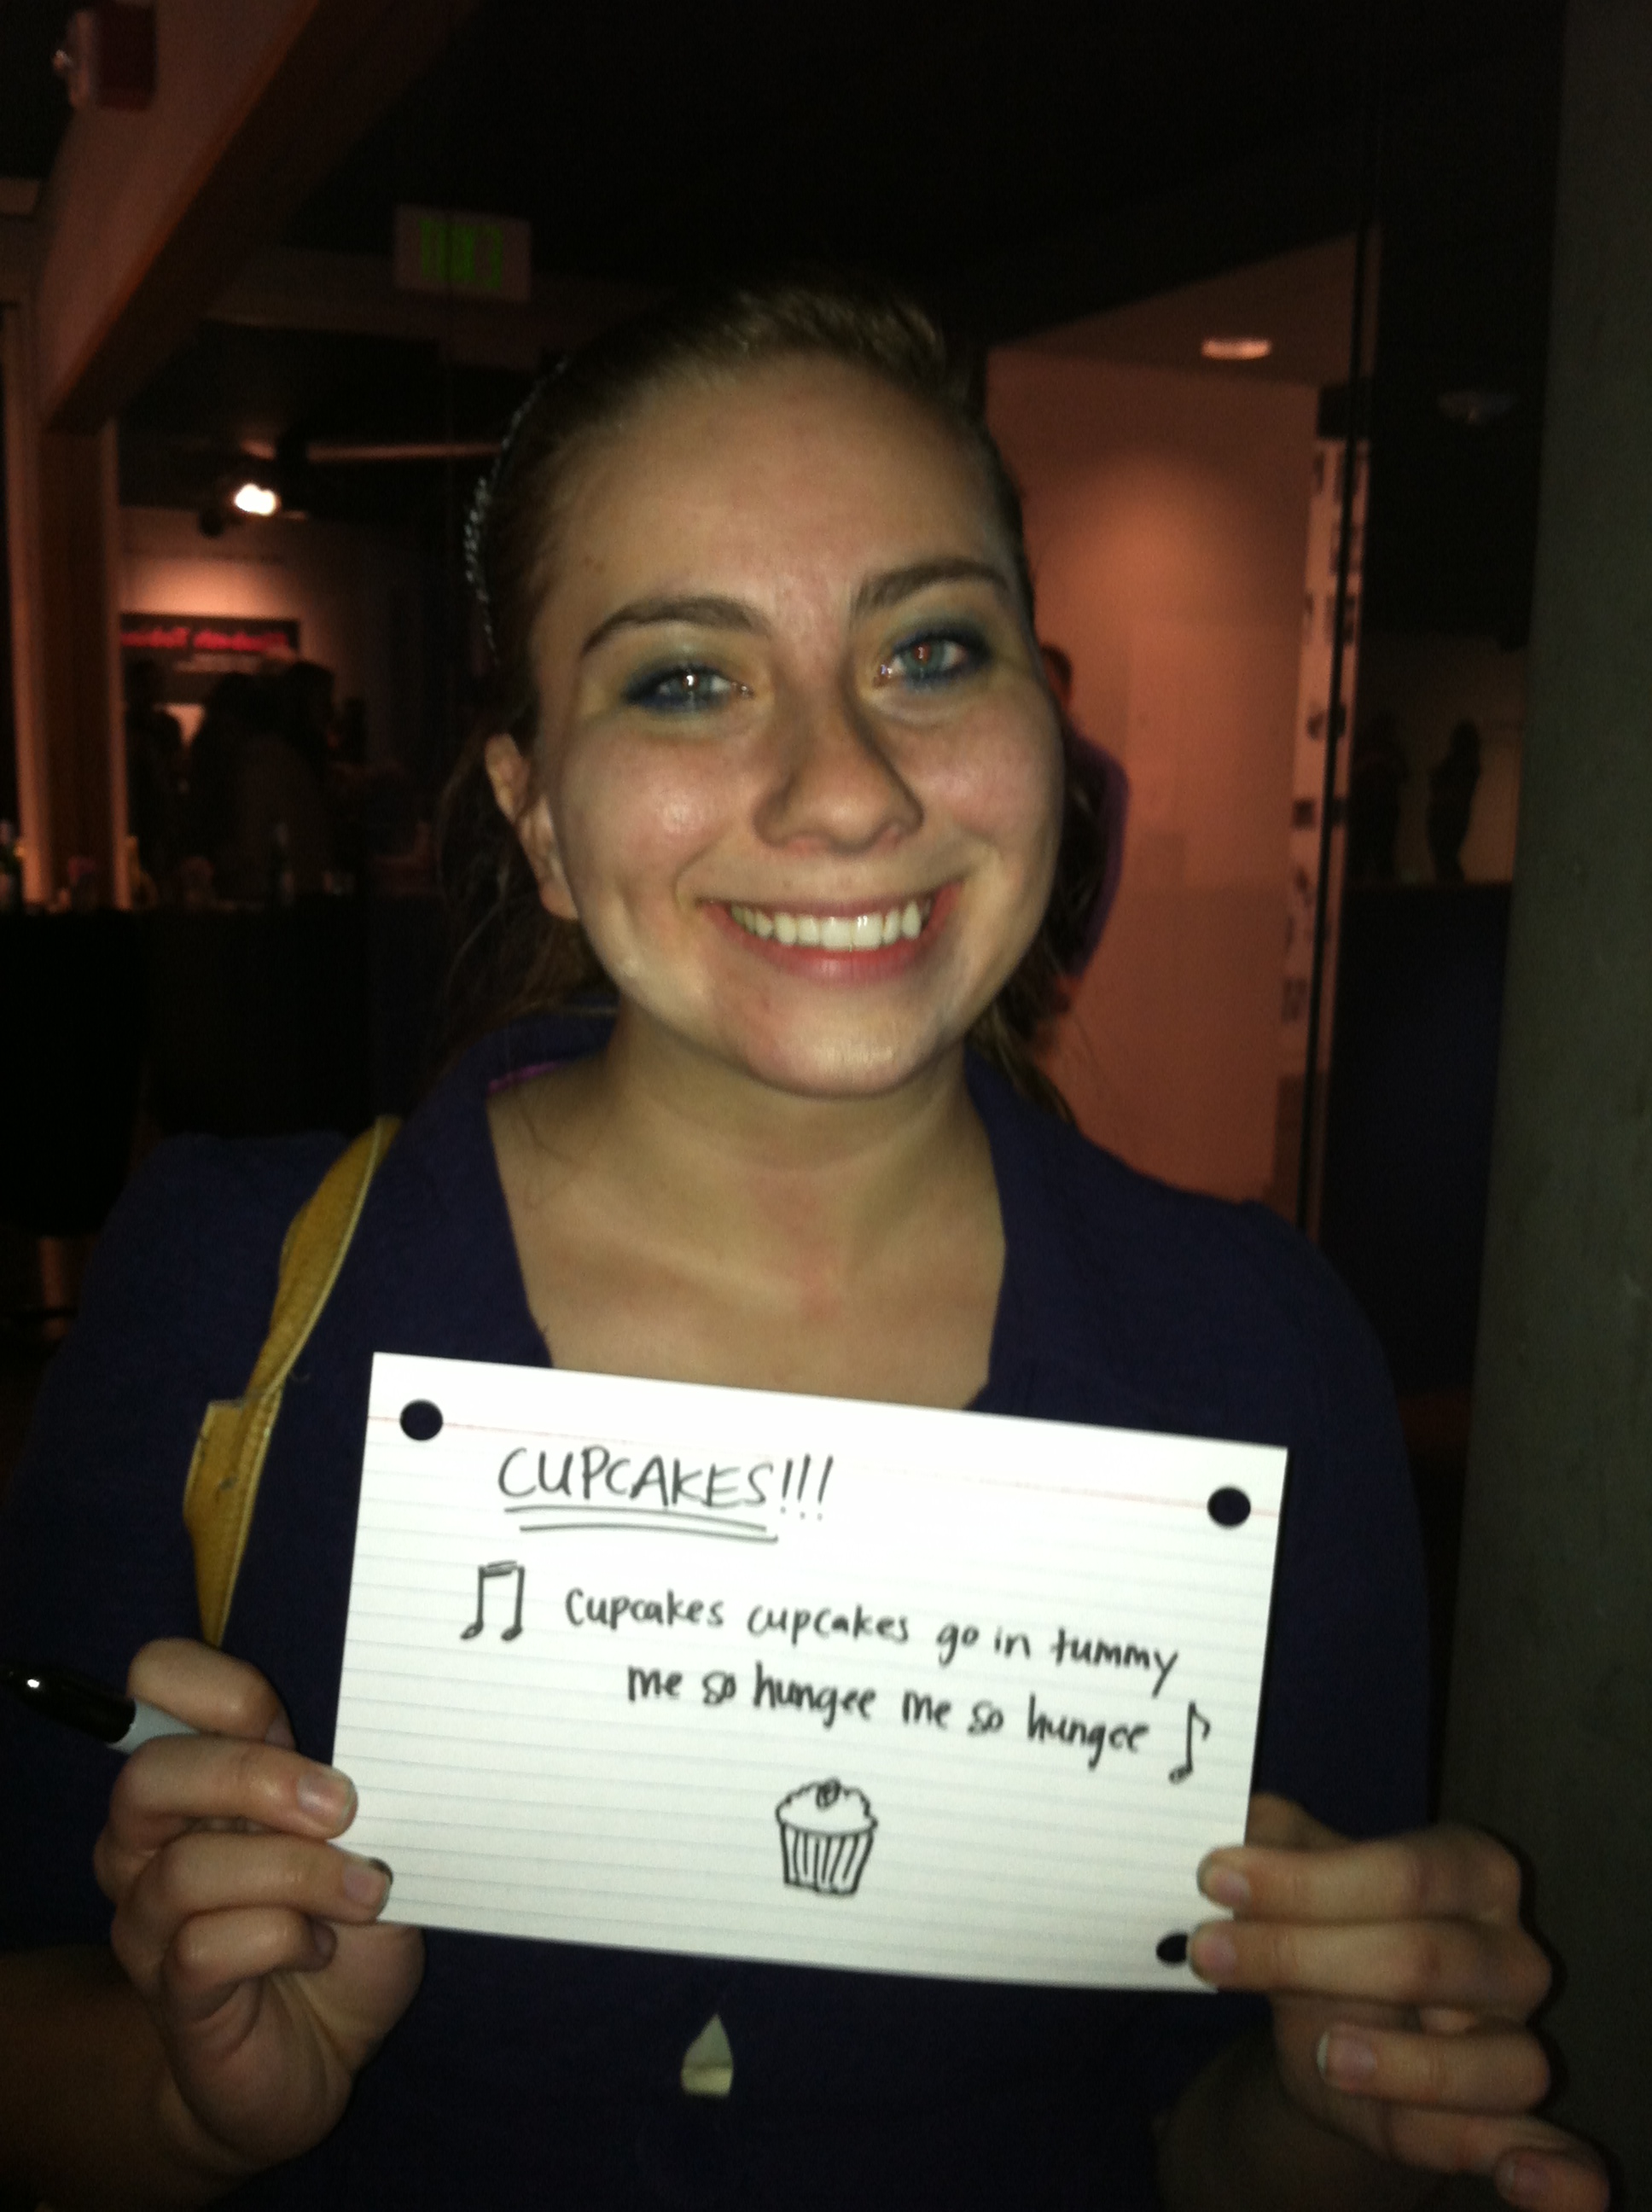 CUPCAKES!!!
Cupcakes cupcakes go in tummy
me so hungee me so hungee